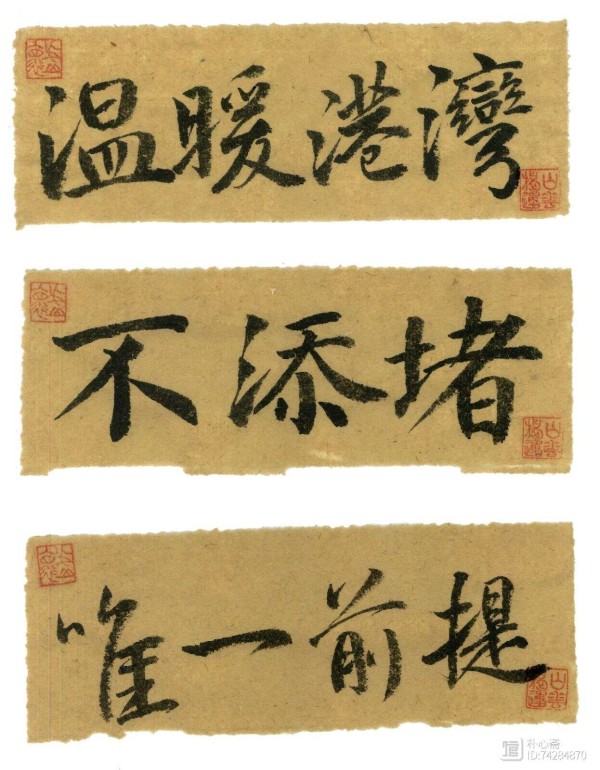 温暖港灣
不添堵
唯一前提
朴心斋
ID:74284870